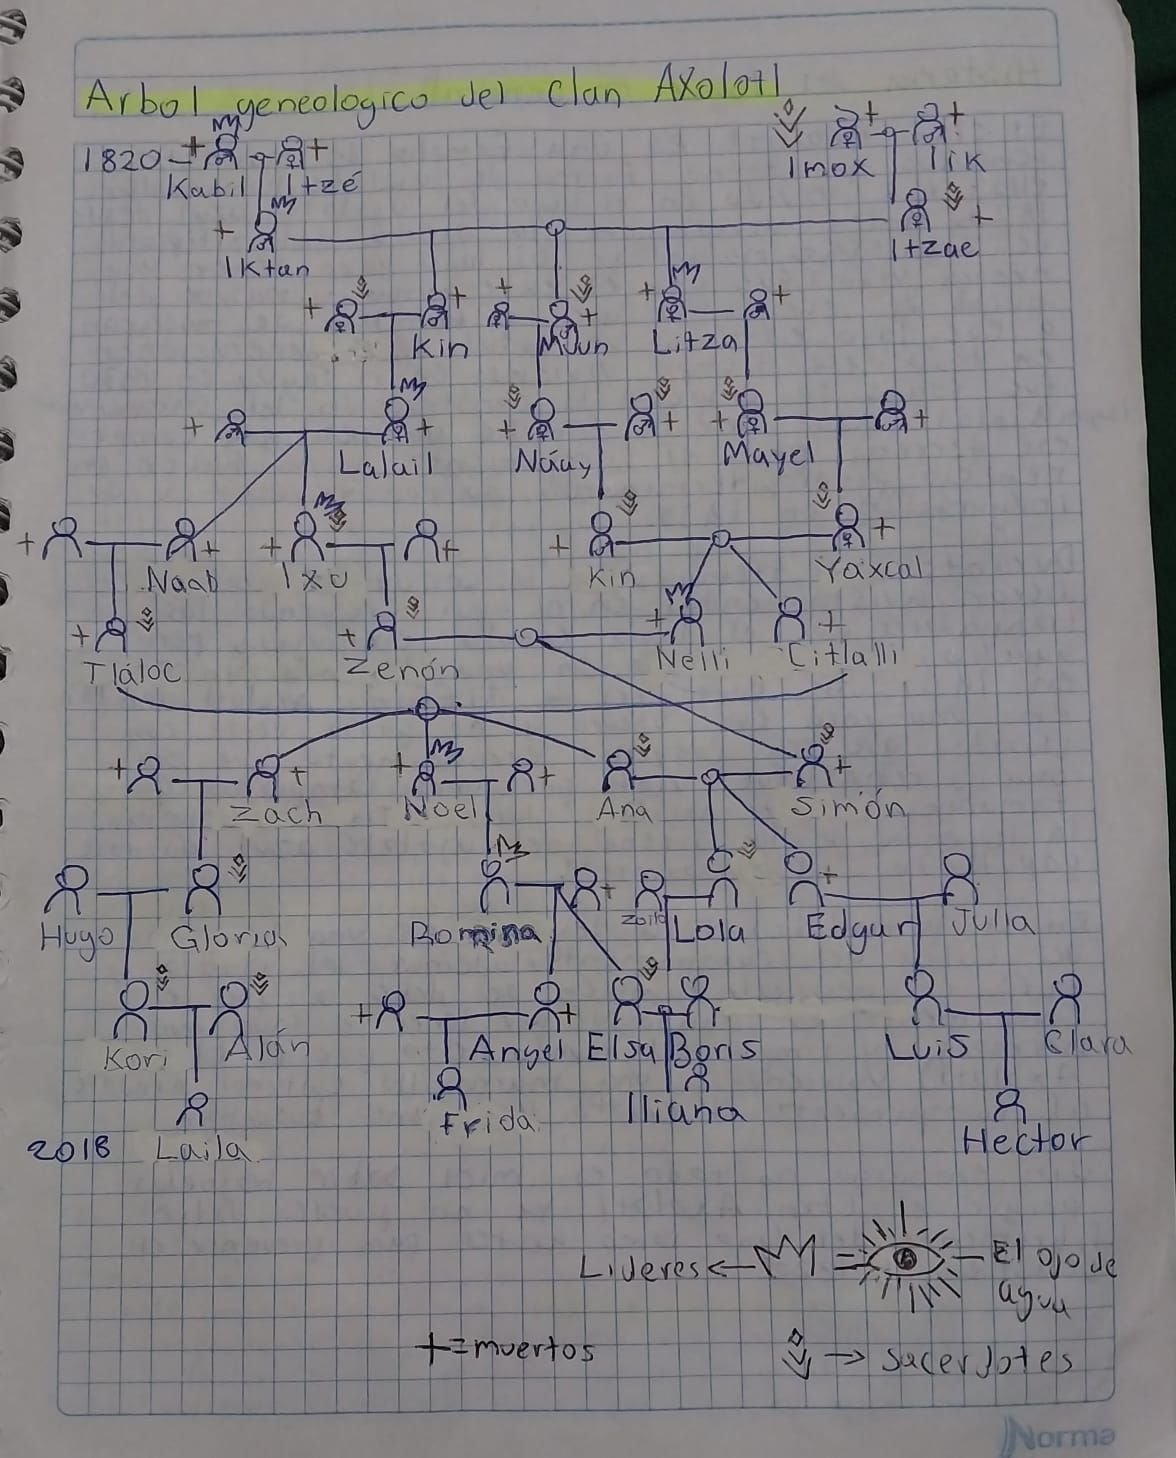 Arbol geneologico del Clan Axolotl
1820
Kabil
Itzé
Imox
Iik
Iktan
Itzae
Kin
Muun
Litza
Lalail
Náuy
Mayel
Naab
Ixu
Kin
Yaxcal
Tláloc
Zenón
Nelli
Citlalli
Zach
Noel
Ana
Simón
Hugo
Gloria
Romina
Zoila
Lola
Edgar
Julia
Kori
Alán
Angel
Elsa
Boris
Luis
Clara
Frida
Iliana
Hector
2018
Laila
Lideres
=
El ojo de
agua
+=muertos
Sacerdotes
Norma